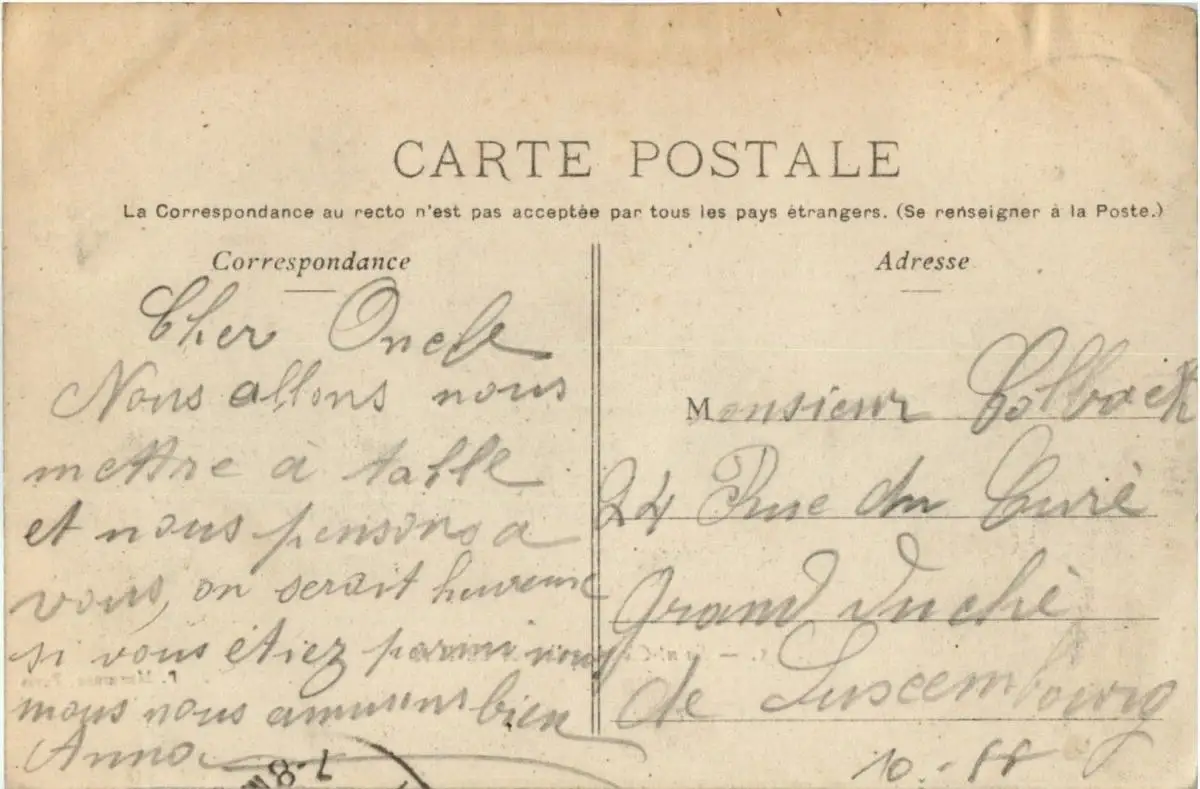 CARTE POSTALE
La Correspondance au recto n'est pas acceptée par tous les pays étrangers. (Se renseigner à la Poste.)
Correspondance
Cher Oncle
Nous allons nous
mettre à table
et nous pensons a
vous, on serait heureuse
si vous étiez parmi nous
nous nous amusons bien
Anna
Adresse
Monsieur Colback
24 Rue du Curé
Grand Duché
de Luxembourg
10.-